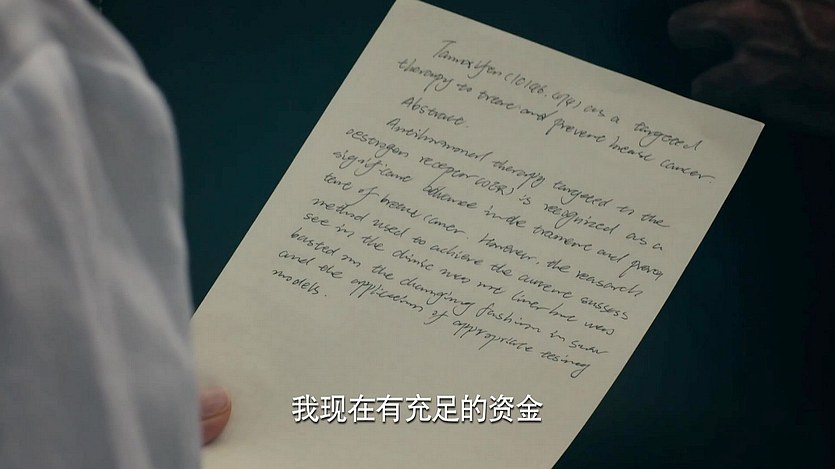 Tamoxifen (ICI46,474) as a targeted
therapy to treat and prevent breast cancer.
Abstract.
Antihormonal therapy targeted to the
oestrogen receptor (OER) is recognized as a
significant advance in the treatment and preven
tent of breast cancer. However, the research
method used to achieve the current success
see in the clinic was not linear but was
basted on the changing fashion in
and the application of appropriate testing
models.
我现在有充足的资金